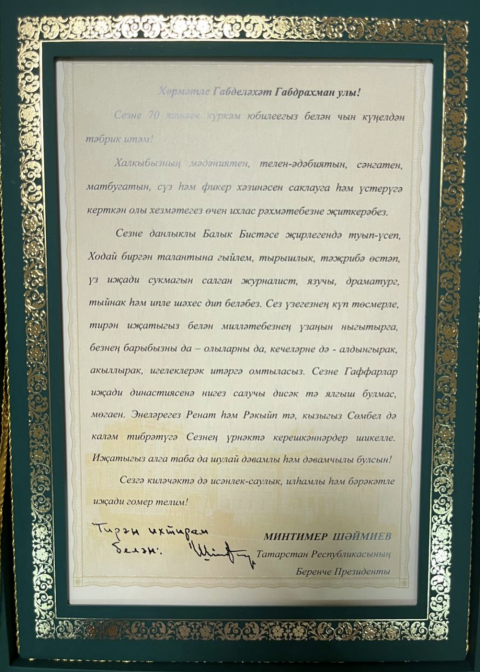 Хөрмәтле Габделәхәт Габдрахман улы!
Сезне 70 яшьлек күркәм юбилеегыз белән чын күңелдән
тәбрик итәм!
Халкыбызның мәдәниятен, телен-әдәбиятын, сәнгатен,
матбугатын, сүз һәм фикер хәзинәсен саклауга һәм үстерүгә
керткән олы хезмәтегез өчен ихлас рәхмәтебезне җиткерәбез.
Сезне данлыклы Балык Бистәсе җирлегендә туып-үсеп,
Ходай биргән талантына гыйлем, тырышлык, тәҗрибә өстәп,
үз иҗади сукмагын салган журналист, язучы, драматург,
тыйнак һәм ипле шәхес дип беләбез. Сез үзегезнең күп төсмерле,
тирән иҗатыгыз белән милләтебезнең узаңын ныгытырга,
безнең барыбызны да – олыларны да, кечеләрне дә - алдынгырак,
акыллырак, игелеклерәк итәргә омтыласыз. Сезне Гаффарлар
иҗади династиясенә нигез салучы дисәк тә ялгыш булмас,
мөгаен. Энеләрегез Ренат һәм Рәкыйп тә, кызыгыз Сөмбел дә
каләм тибрәтүгә Сезнең үрнәктә керешкәннәрдер шикелле.
Иҗатыгыз алга таба да шулай дәвамлы һәм дәвамчылы булсын!
Сезгә киләчәктә дә исәнлек-саулык, илһамлы һәм бәрәкәтле
иҗади гомер телим!
Тирән ихтирам
белән:
МИНТИМЕР ШӘЙМИЕВ
Татарстан Республикасының
Беренче Президенты